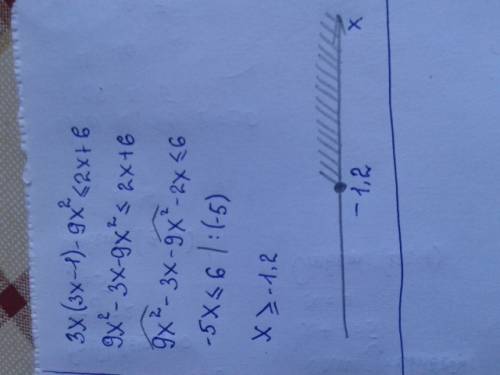 3x(3x-1)-9x²≤2x+6
9x²-3x-9x²≤2x+6
9x²-3x-9x²-2x≤6
-5x≤6 |:(-5)
x≥-1,2
-1,2 x